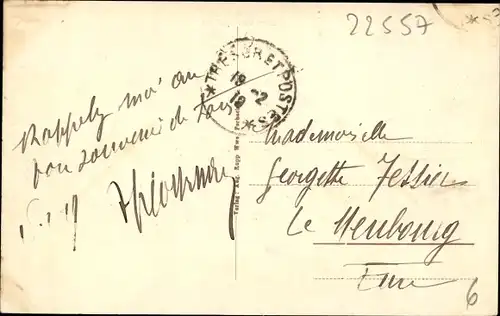 22557
TRESOR ET POSTES
19
2
19
Rappelez moi au
bon souvenir de tous
Mademoiselle
Georgette Tessier
Le Neubourg
Eure
6
Verlag v. Aug. Rupp Wwe.